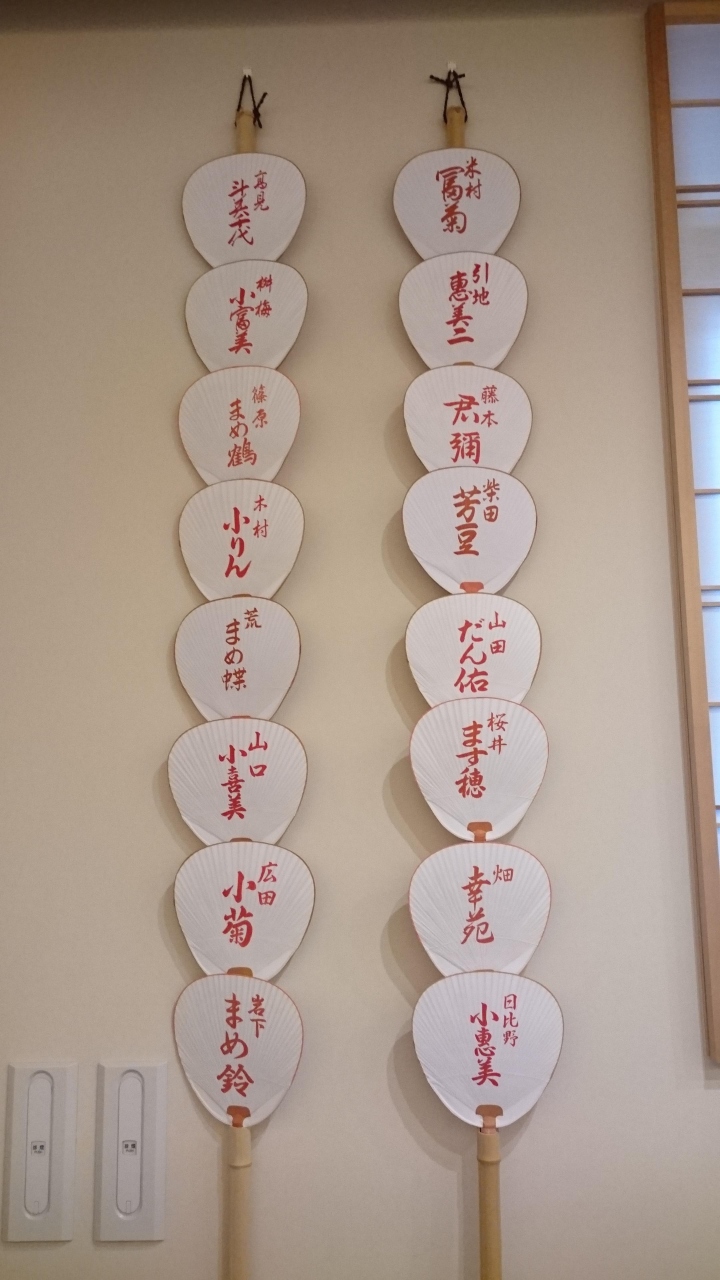 米村
冨菊
引地
惠美二
藤本
君彌
柴田
芳豆
山田
だん佑
桜井
ます穂
畑
幸苑
日比野
小惠美
高見
桝梅
小富美
篠原
まめ鶴
木村
小りん
荒
まめ蝶
山口
小喜美
広田
小菊
岩下
まめ鈴